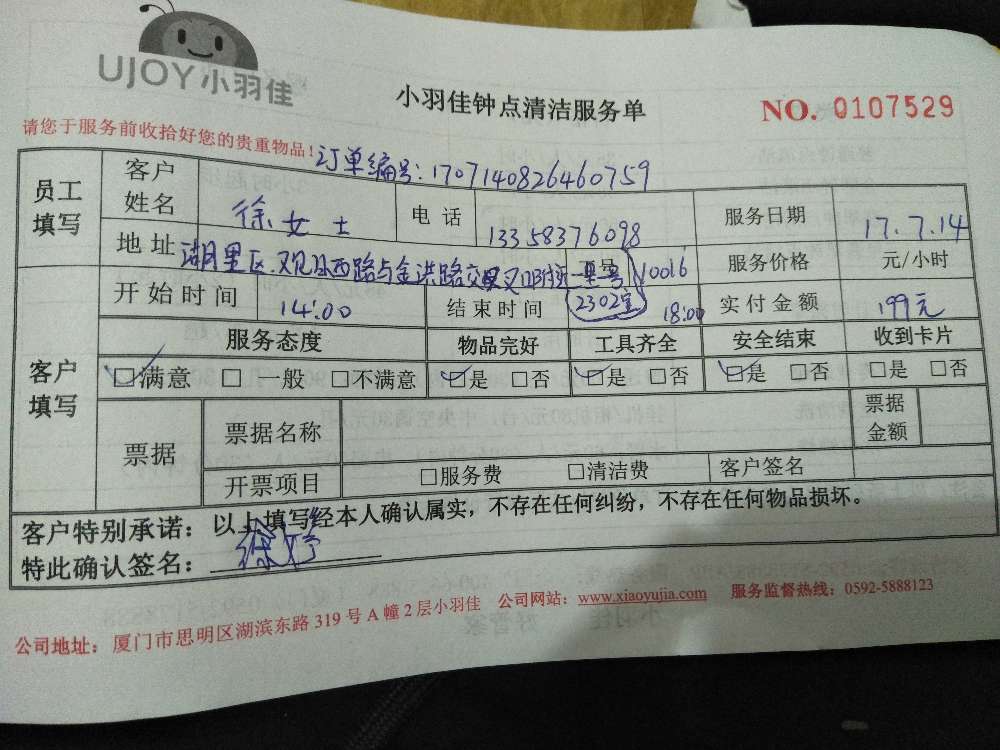 UJOY小羽佳
小羽佳钟点清洁服务单
NO. 0107529
请您于服务前收拾好您的贵重物品!
订单编号:1707140826460759
员工填写
客户姓名 徐女士 电话 13358376098 服务日期 17.7.14
地址 湖里区.观日西路与金洪路交 10016 2302室 服务价格 元/小时
客户填写
开始时间 14:00 结束时间 18:00 实付金额 199元
服务态度 物品完好 工具齐全 安全结束 收到卡片
☑满意 □一般 □不满意 ☑是 □否 ☑是 □否 ☑是 □否 □是 □否
票据 票据名称 票据金额
开票项目 □服务费 □清洁费 客户签名
客户特别承诺:以上填写经本人确认属实,不存在任何纠纷,不存在任何物品损坏。
特此确认签名:徐婷
公司地址:厦门市思明区湖滨东路319号A幢2层小羽佳 公司网站:www.xiaoyujia.com 服务监督热线:0592-5888123